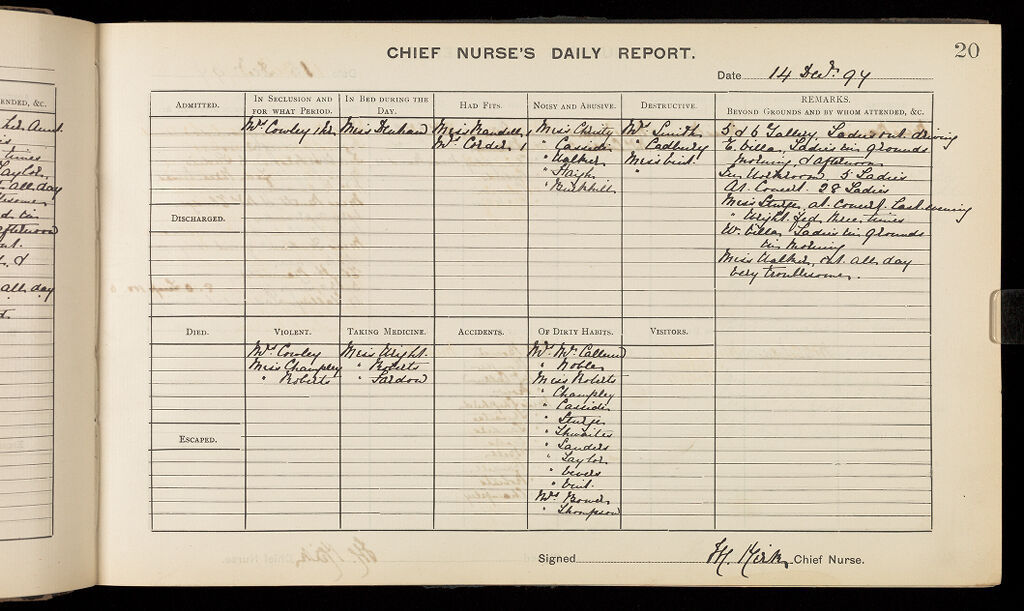 20
CHIEF NURSE'S DAILY REPORT.
Date 14 Decr. 94
ADMITTED.
IN SECLUSION AND FOR WHAT PERIOD.
Mrs Cowley 1 hr.
IN BED DURING THE DAY.
Miss Denham
HAD FITS.
Miss Randell 1
Mrs Corder 1
NOISY AND ABUSIVE.
Miss Christy
" Cassidi
" Walker
" Haigh
" Burkhill
DESTRUCTIVE.
Mrs Smith
" Cadbury
Miss Vint
"
REMARKS.
BEYOND GROUNDS AND BY WHOM ATTENDED, &C.
5 & 6 Gallery, Ladies out driving
E. Villa, Ladies in grounds
Morning & afternoon
In Workroom 5 Ladies
At Concert 28 Ladies
Miss Sturge, at Concert last evening
" Wright fed three times
W. Villa Ladies in grounds
in morning
Miss Walker, out all day
very troublesome.
DISCHARGED.
DIED.
VIOLENT.
Mrs Cowley
Miss Champley
" Roberts
TAKING MEDICINE.
Miss Wright
" Roberts
" Sardow
ACCIDENTS.
OF DIRTY HABITS.
Mrs McCallum
" Nobles
Miss Roberts
" Champley
" Cassidi
" Sturge
" Thwaites
" Sanders
" Taylor
" Vevers
" Vint
Mrs Bower
" Thompson
VISITORS.
ESCAPED.
Signed H. Kirk Chief Nurse.
ENDED, &C.
her Aunt
times
Taylor
all day
afternoon
all day